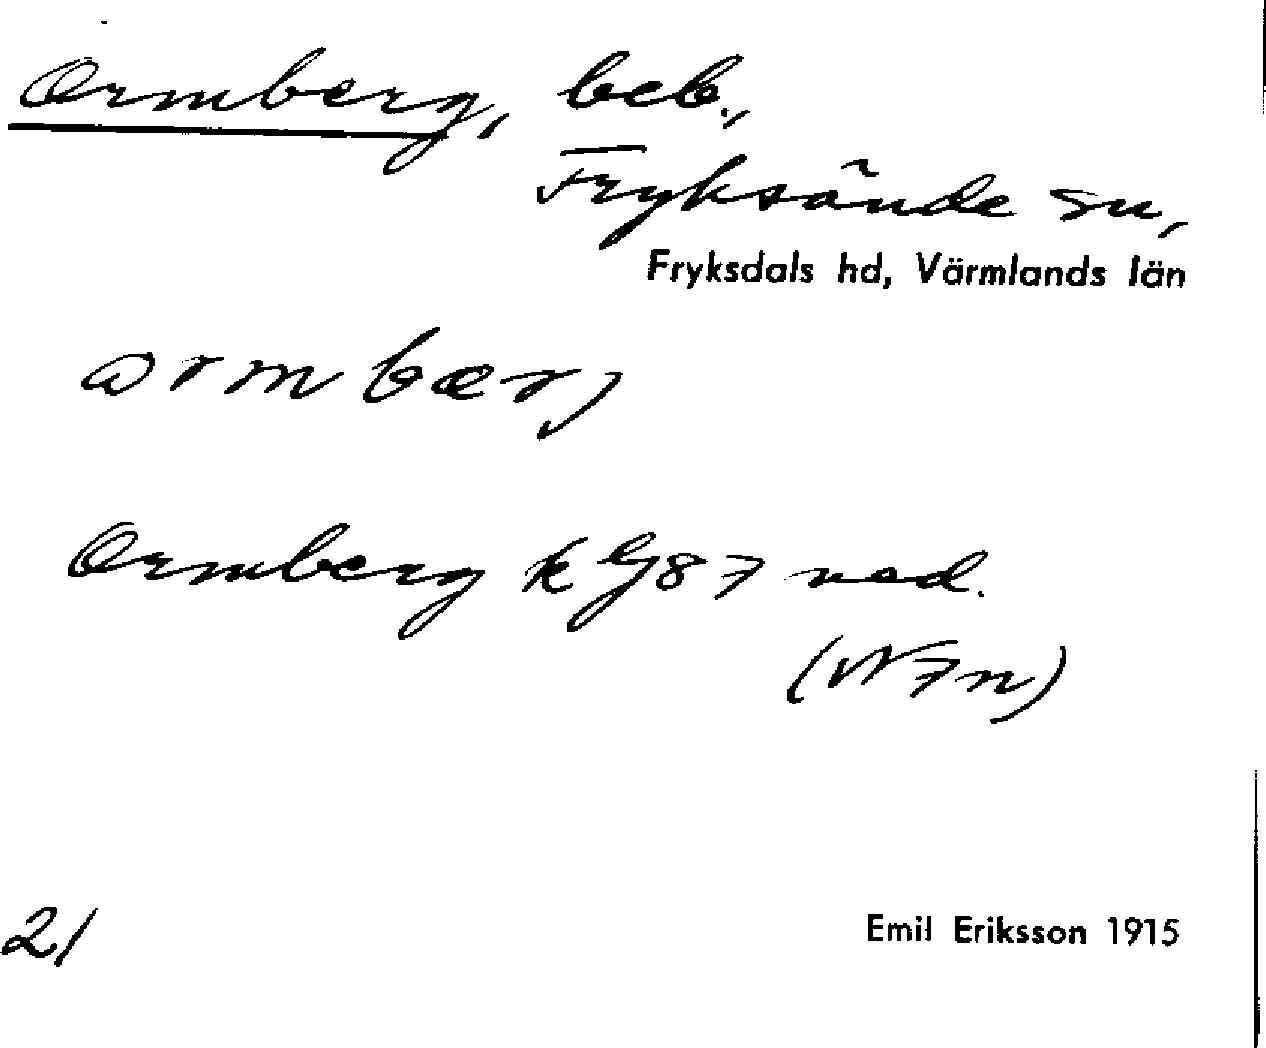 Ormberg, beb.,
Fryksände sn,
Fryksdals hd, Värmlands län
ormbærj
Ormberg k GJ87 ned.
(NFn)
21
Emil Eriksson 1915